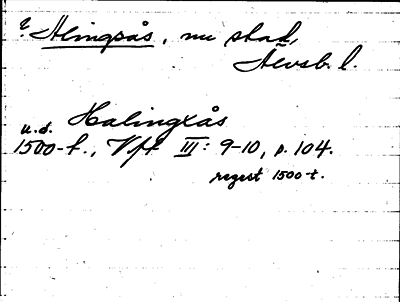 ? Alingsås, nu stad,
Älvsb. l.
Halingxås
u.d.
1500-t., Vft III: 9-10, s. 104.
regest 1500-t.